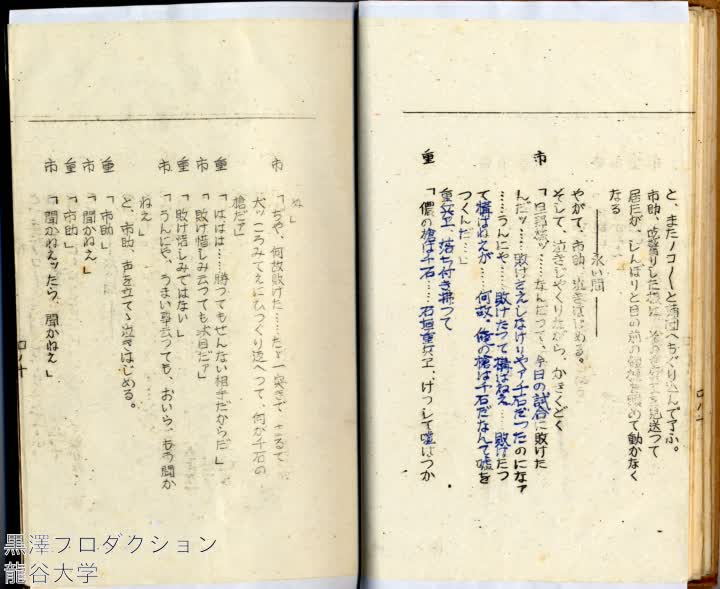 と、またノコ〳〵と蒲団へもぐり込んで了ふ。
市助、吃驚りした様に、
居たが、しんぼりと目の前の
を眺めて動かなく
なる
永い間
やがて、市助、泣きはじめる。
そして、泣きじゃくりながら、かきくどく
市「旦那様ッ……なんだって、今日の試合に敗けた
んだッ……敗けさえしなけりやァ千石だつたのになァ
……うんにや……敗けたって構はねえ……敗けたつ
て構はねえが……何故、俺の槍は千石だなんて嘘を
つくんだ……」
重兵ヱ、落ち付き拂つて
重「儂の槍は千石……石垣重兵ヱ、けつして嘘はつか
ロノ二
ぬ」
市「ぢや、何故敗けた……たゞ一突きで、まるで
犬ッころみてえにひつくり返へつて、何が千石の
槍だァ」
重「ははは……勝つてもせんない相手だからだ」
市「敗け惜しみ云つても駄目だァ」
重「敗け惜しみではない」
市「うんにや、うまい事云つても、おいら、もう聞か
ねえ」
と、市助、声を立てゝ泣きはじめる。
重「市助」
市「聞かねえ」
重「市助」
市「聞かねえッたら、聞かねえ」
ロノ十
黒澤プロダクション
龍谷大学